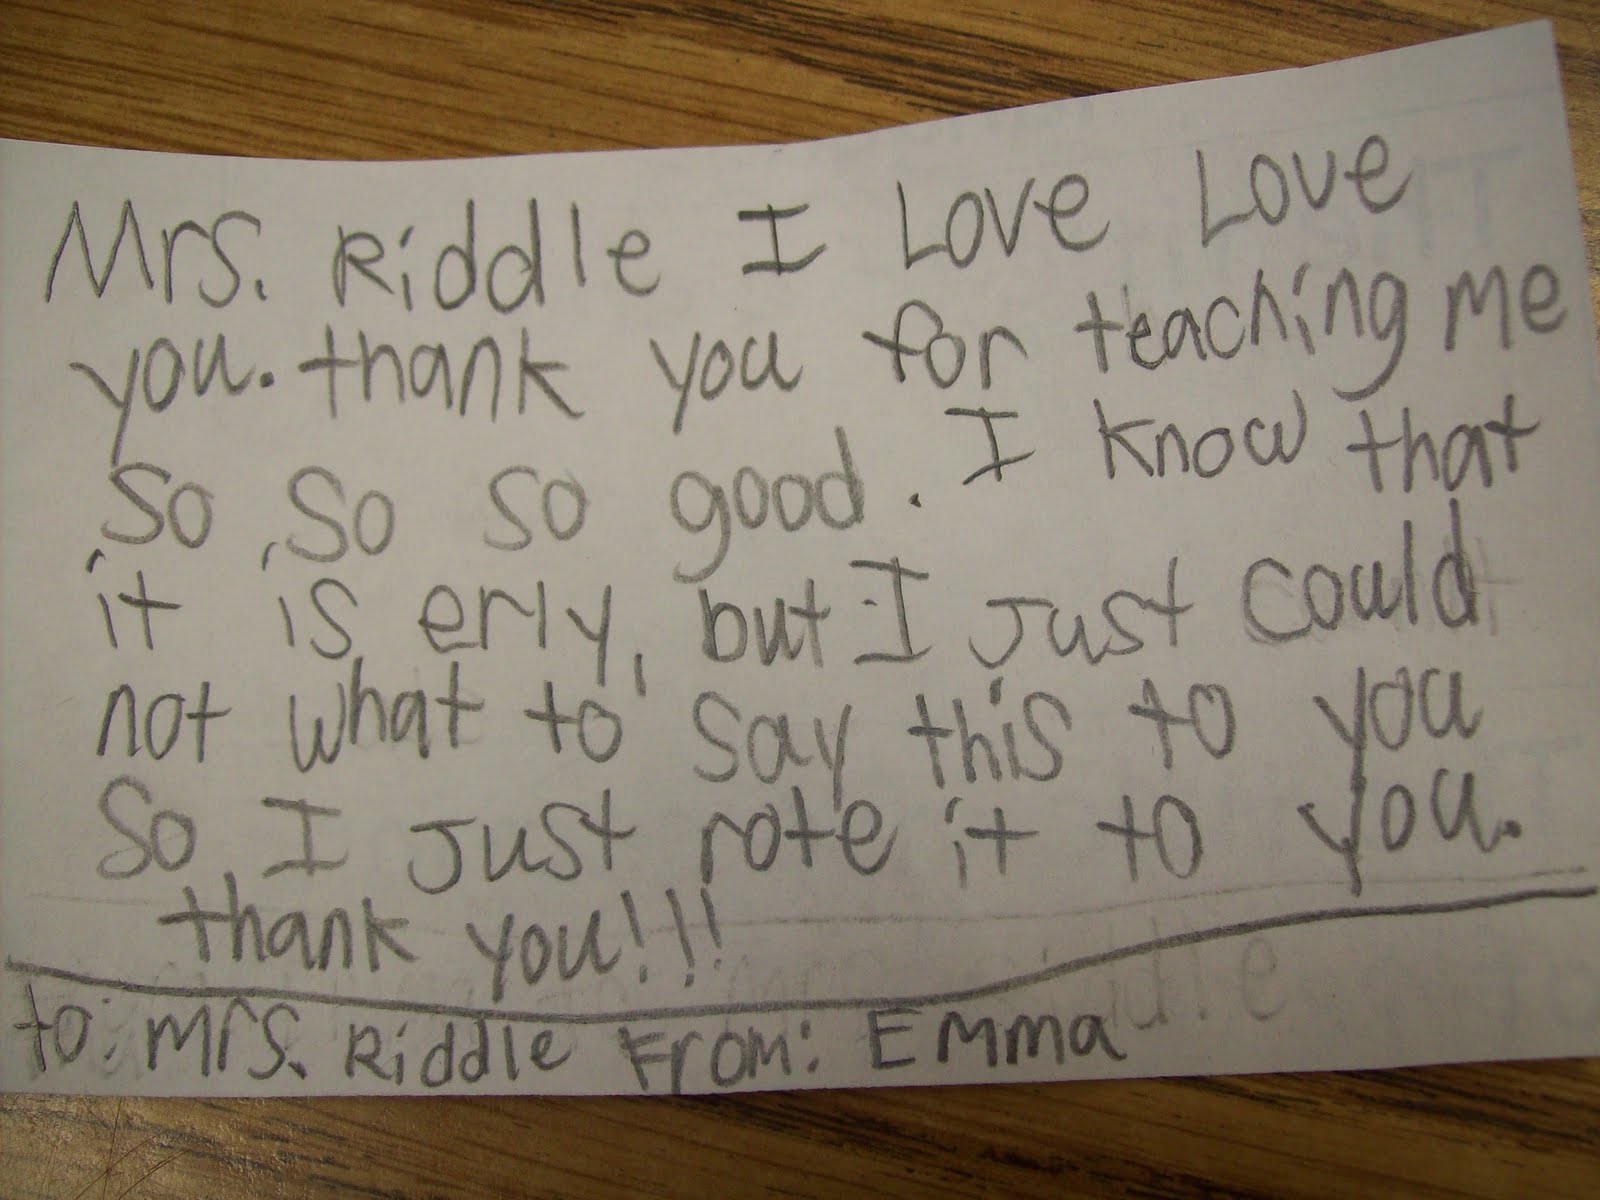 Mrs. Riddle I Love Love
you. thank you for teaching me
so, so so good. I know that
it is erly, but I just could
not what to say this to you
So I just rote it to you.
thank you!!!
to: Mrs. Riddle From: Emma